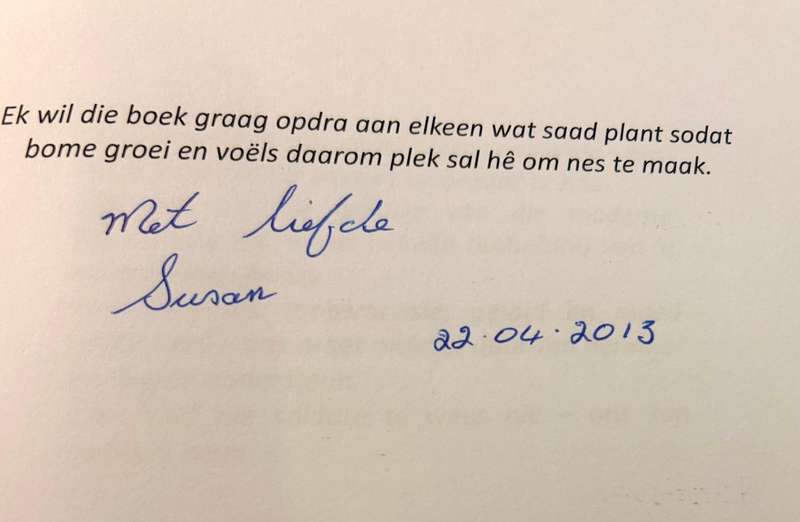 Ek wil die boek graag opdra aan elkeen wat saad plant sodat
bome groei en voëls daarom plek sal hê om nes te maak.
Met liefde
Susan
22.04.2013